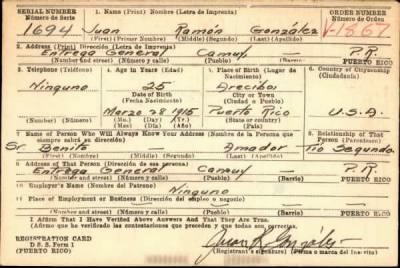 SERIAL NUMBER 1. Name (Print) Nombre (Letra de Imprenta) ORDER NUMBER
Número de Serie Número de Orden
1694 Juan Ramón González V-1867
(First) (Nombre) (Middle) (Segundo) (Last) (Apellido)
2. Address (Print) Dirección (Letra de Imprenta)
Entrega General Camuy P.R.
(Number and street) (Número y calle) (Town) (Pueblo) (Barrio) PUERTO RICO
3. Telephone (Teléfono) 4. Age in Years (Edad) 5. Place of Birth (Lugar de Nacimiento) 6. Country of Citizenship (Ciudadanía)
Ninguno 25 Arecibo
Date of Birth City or Town
(Fecha Nacimiento) (Ciudad o Pueblo)
Marzo 28 1915 Puerto Rico U.S.A.
(Number) (Número) (Mo.) (Day) (Yr.) (State or country)
(Mes) (Día) (Año) (Estado o país)
7. Name of Person Who Will Always Know Your Address (Nombre de la Persona que siempre sabrá su dirección) 8. Relationship of That Person (Parentesco)
Sr. Benito Amador Tío Segundo
(First) (Nombre) (Middle) (Segundo) (Last) (Apellido)
9. Address of That Person (Dirección de esa persona)
Entrega General Camuy P.R.
(Number and street) (Número y calle) (Town) (Pueblo) (Barrio) PUERTO RICO
10. Employer's Name (Nombre del Patrono)
Ninguno
11. Place of Employment or Business (Dirección del empleo o negocio)
(Number and street) (Número y calle) (Town) (Pueblo) (Barrio) PUERTO RICO
I Affirm That I Have Verified Above Answers and That They Are True.
Afirmo que he verificado las contestaciones que preceden y que todas son ciertas.
REGISTRATION CARD
D. S. S. Form 1
(PUERTO RICO)
Juan R. González
Registrant's signature) (firma o marca del Inscrito)